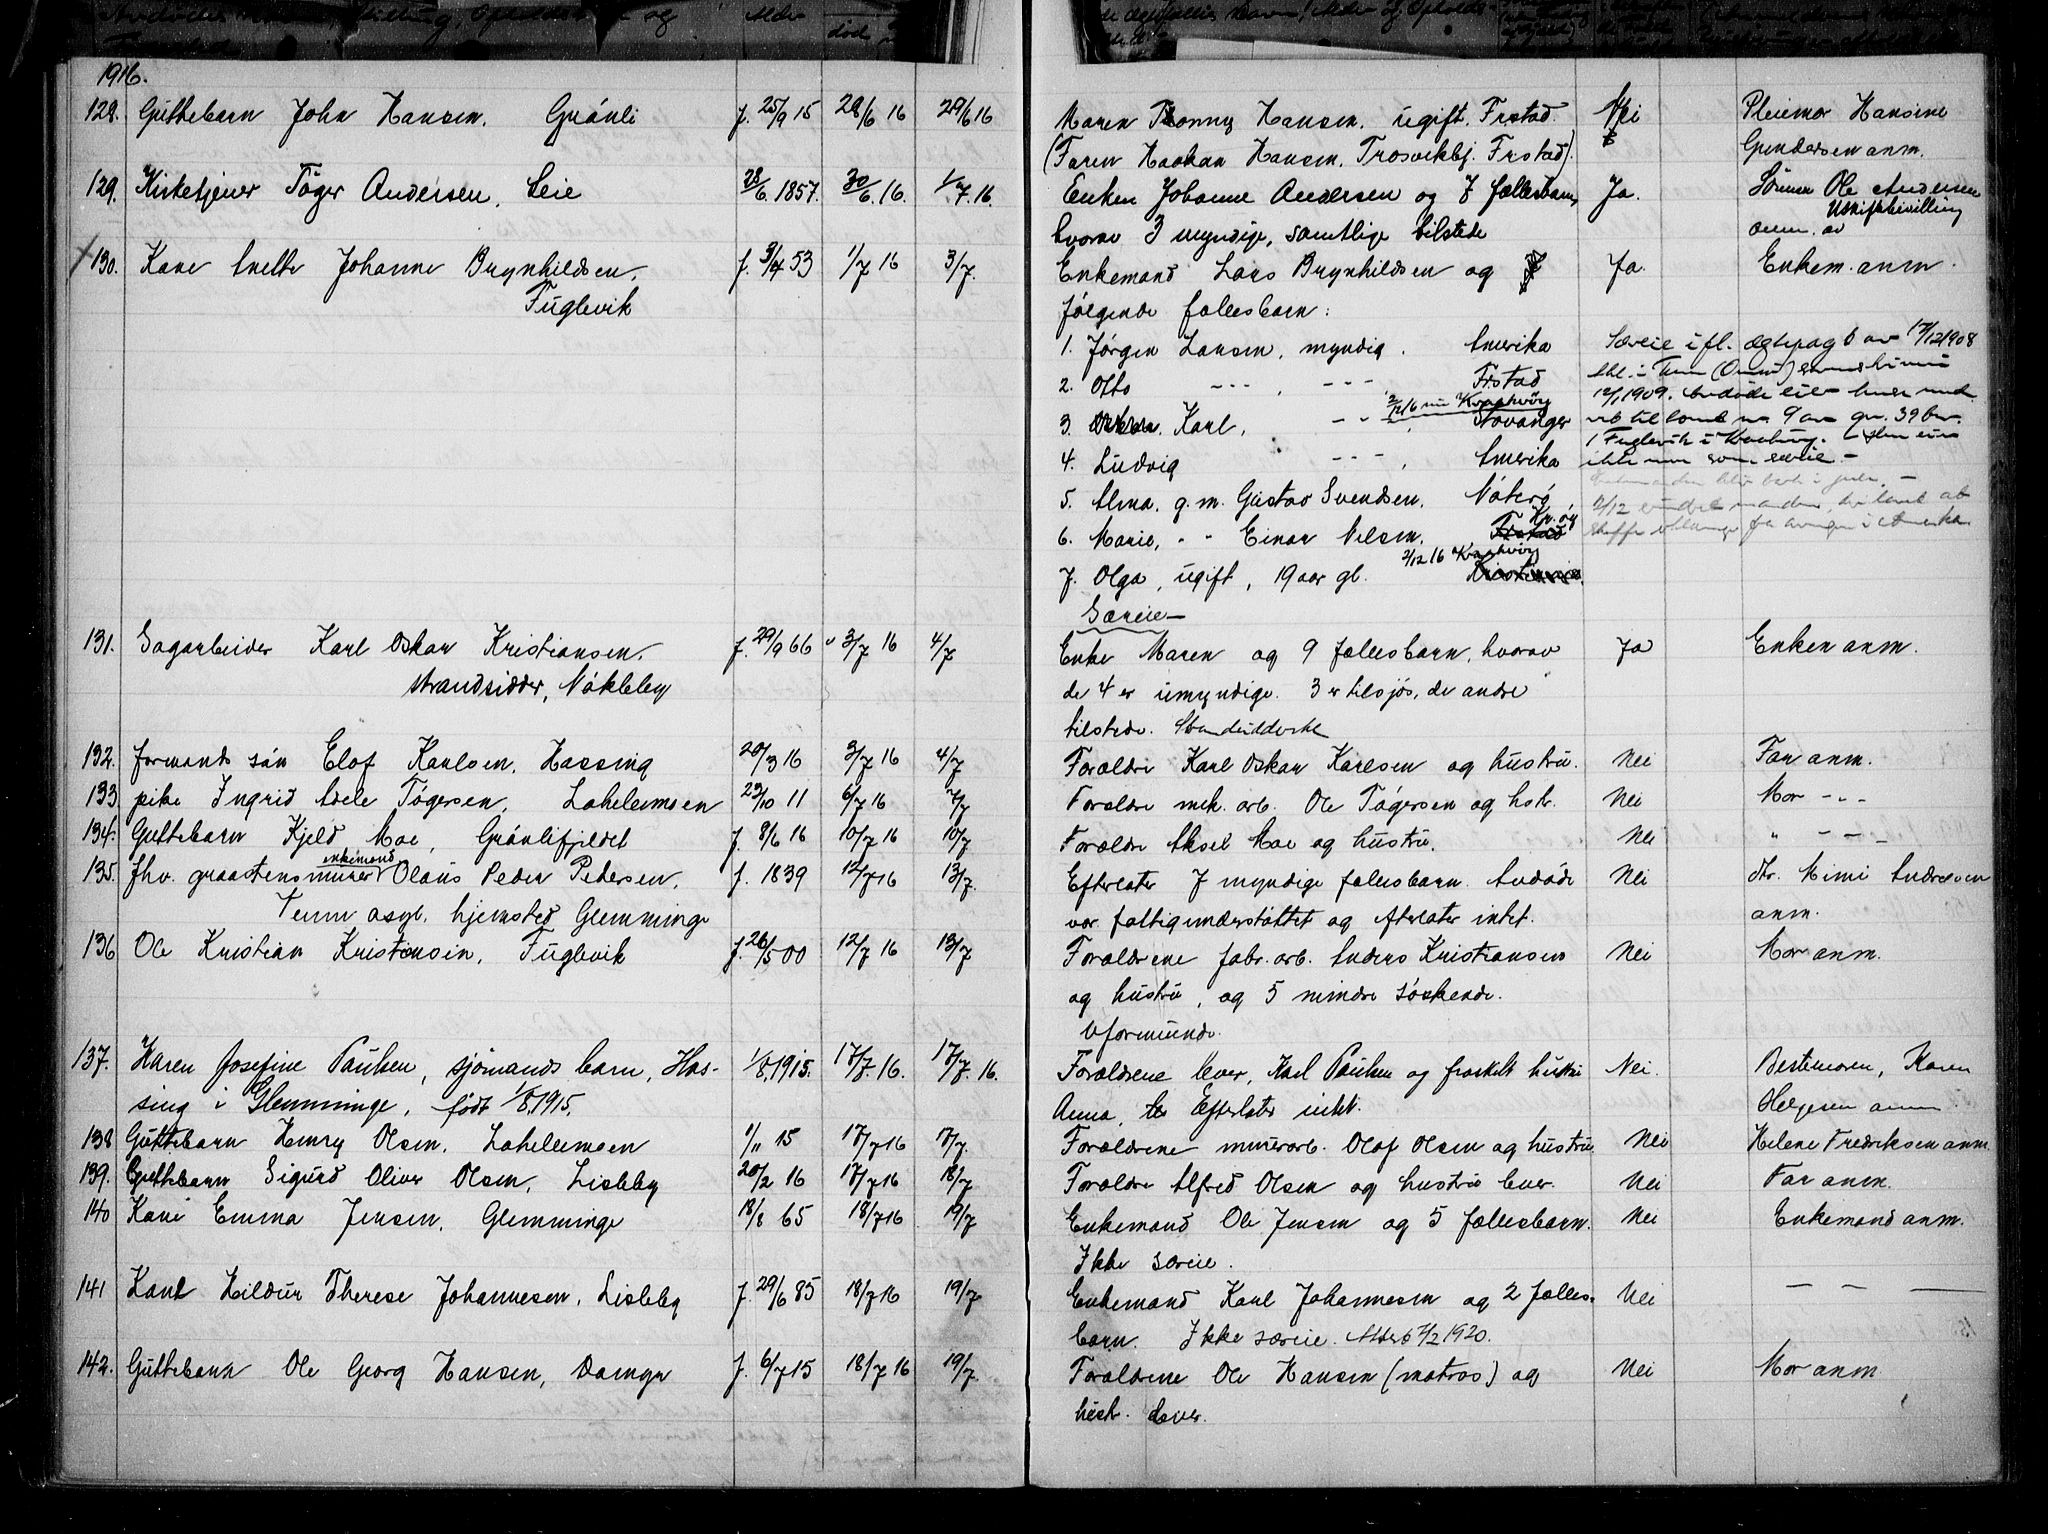 1916.
128. Guttebarn John Hansen. Grönli f. 25/9 15 28/6 16 29/6 16 Maren Hansen. ugift. Frstad. Nei Pleiemor Hansine
(Faren Haakan Hansen, Trosvikbj. Frstad). Gundersen anm.
129. Kirketjener Töger Andersen, Leie 28/6.1857. 30/6.16. 1/7.16. Enken Johanne Andersen og 7 fællesbarn, Ja. Sönnen Ole Andersen
hvorav 3 myndige, samtlige tilstede anm. av Uskiftbevilling
130. Kone Anette Johanne Brynhildsen, f. 3/4 53 1/7 16 3/7. Enkemand Lars Brynhildsen og Ja. Enkem. anm.
Fuglevik følgende fællesbarn:
1. Jørgen Larsen, myndig. Amerika Særeie ifl. ægtepagt av 17/12 1908
2. Otto --- , --- , Frstad
2/12 16 nu Kraakeröy 12/1 1909.
3. Karl, -- , Stavanger
4. Ludvig --- , Amerika ikke som særeie. -
5. Alma, g.m. Gustav Svendsen, Nöterö
6. Marie, - - Einar Nilsen, Frstad Kr.öy
2/12 16 Kraakeröy
7. Olga, ugift, 19 aar gl. Kristiania.
Særeie -
131. Sagarbeider Karl Oskar Kristiansen, f. 29/9 66 3/7 16 4/7 Enke Maren og 9 fællesbarn, hvorav Ja Enken anm.
strandsidder, Nökleby de 4 er umyndige. 3 er tilsjös, de andre
tilstede.
132. formands sön Elof Karlsen, Hassing 20/3 16 3/7 16 4/7 Forældre Karl Oskar Karlsen og hustru. Nei Far anm.
133. pike Ingrid Adele Tögersen, Lahellemoen 23/10 11 6/7 16 7/7 Forældre mek. arb. Ole Tögersen og hstr. Nei Mor - -
134. Guttebarn Kjeld Moe, Grönlifjeldet f. 8/6 16 10/7 16 10/7 Forældre Aksel Moe og hustru. Nei " - -
135. fhv. graastensmurer enkemand Olaus Peder Petersen, f. 1839 12/7 16 13/7. Efterlater 7 myndige fællesbarn. Avdöde Nei dtr. Mimi Andresen
Tunn asyl, hjemsted Glemminge var fattigunderstöttet og efterlater intet. anm.
136 Ole Kristian Kristensen, Fuglevik f. 26/5 00 12/7 16 13/7 Forældrene fabr. arb. Anders Kristiansen Nei Mor anm.
og hustru, og 5 mindre söskende.
Oformunde.
137. Karen Josefine Paulsen, sjömands barn, Has- 1/8.1915. 17/7.16. 17/7.16. Forældrene lever, Karl Paulsen og fraskilt hustru Nei. Bestemoren, Karen
sing i Glemminge, født 1/8.1915. Anna, Efterlater intet. Helgesen anm.
138 Guttebarn Henry Olsen, Lahellemoen 1/11 15 17/7 16 17/7. Forældrene murerarb. Olof Olsen og hustru Nei Helene Fredriksen anm.
139. Guttebarn Sigurd Oliver Olsen, Lisleby 20/2 16 17/7 16 18/7 Forældre Alfred Olsen og hustru lever. Nei Far anm.
140 Kone Emma Jensen, Glemminge 18/8 65 18/7 16 19/7 Enkemand Ole Jensen og 5 fællesbarn. Nei Enkemand anm.
Ikke særeie.
141 Kone Hildur Therese Johannesen, Lisleby f. 29/6 85 18/7 16 19/7 Enkemand Karl Johannesen og 2 fælles- Nei - - -
barn. Ikke særeie. Attest 7/2 1920.
142. Guttebarn Ole Georg Hansen, Damyr f. 6/7 15 18/7 16 19/7. Forældrene Ole Hansen (matros) og Nei Mor anm.
hustr. lever.